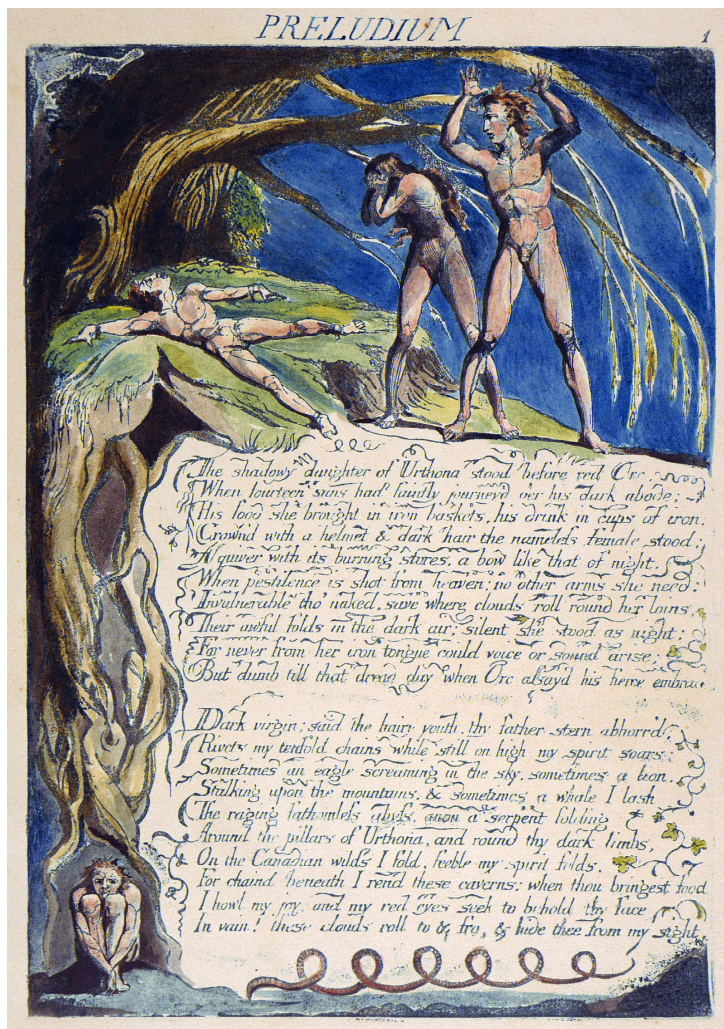 PRELUDIUM
1
The shadowy daughter of Urthona stood before red Orc
When fourteen suns had faintly journey'd o'er his dark abode;
His food she brought in iron baskets, his drink in cups of iron;
Crown'd with a helmet & dark hair the nameless female stood;
A quiver with its burning stores, a bow like that of night,
When pestilence is shot from heaven; no other arms she need:
Invulnerable tho' naked, save where clouds roll round her loins,
Their awful folds in the dark air; silent she stood as night;
For never from her iron tongue could voice or sound arise;
But dumb till that dread day when Orc assay'd his fierce embrace.
Dark virgin; said the hairy youth, thy father stern abhorr'd;
Rivets my tenfold chains while still on high my spirit soars;
Sometimes an eagle screaming in the sky, sometimes a lion,
Stalking upon the mountains, & sometimes a whale I lash
The raging fathomless abyss, anon a serpent folding
Around the pillars of Urthona, and round thy dark limbs,
On the Canadian wilds I fold, feeble my spirit folds.
For chaind beneath I rend these caverns; when thou bringest food
I howl my joy: and my red eyes seek to behold thy face
In vain! these clouds roll to & fro, & hide thee from my sight.